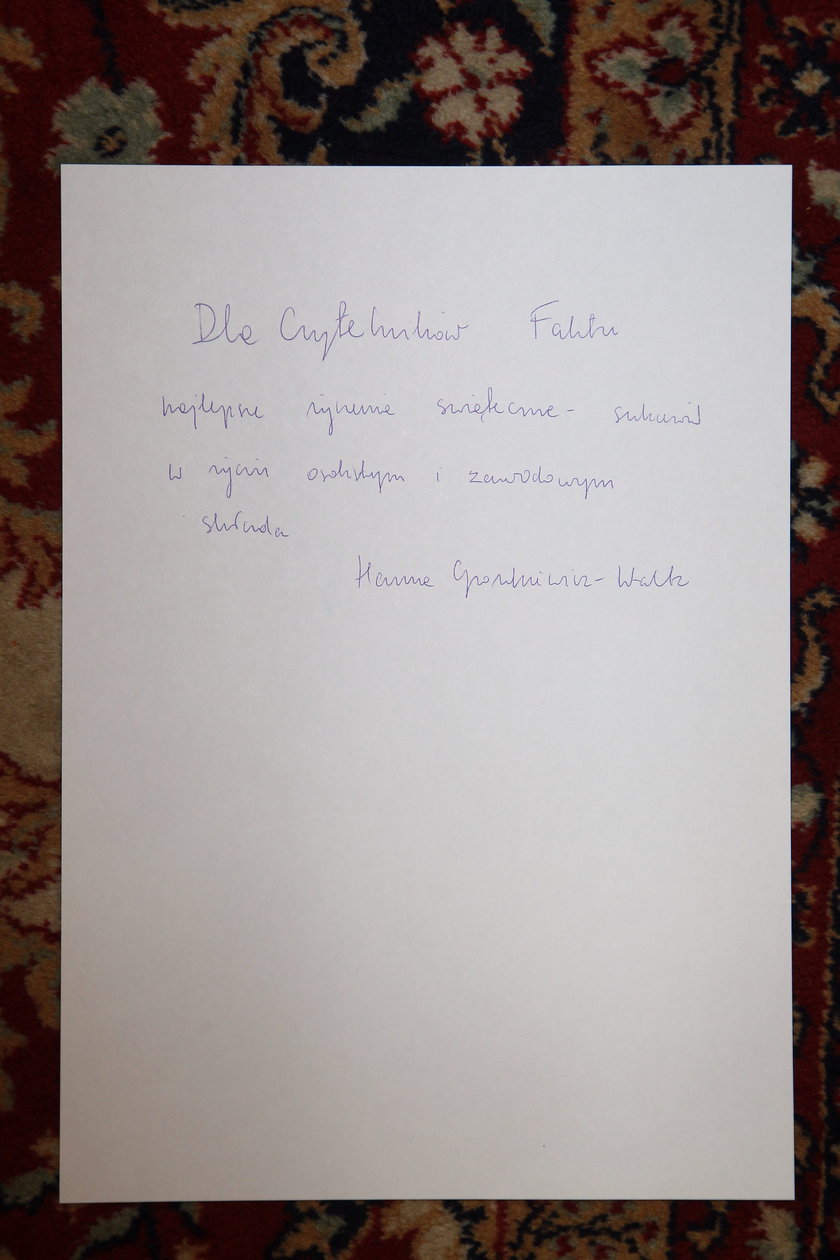 Dla Czytelników Faktu
najlepsze życzenia świąteczne - sukcesów
w życiu osobistym i zawodowym
składa
Hanna Gronkiewicz-Waltz